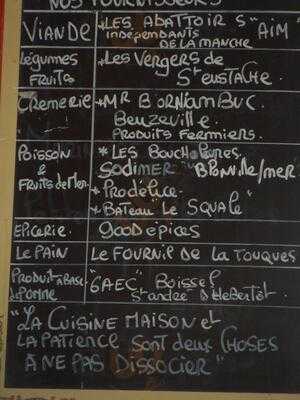 NOS FOURNISSEURS
VIANDE *LES ABATTOIRS "AIM"
INDEPENDANTS
DE LA MANCHE
Légumes *Les Vergers de
FRUITS St EUSTACHE.
CREMERIE *MR BORNAMBUC.
Beuzeville.
PRODUITS FERMIERS.
POISSON * LES BOUCHOLEURS
& SODIMER BLONVILLE/MER
FRUITS DE MER * Prodélice.
* BATEAU "LE SQUALE"
EPICERIE. good épices
LE PAIN LE FOURNIL DE LA TOUQUES
PRODUIT À BASE "GAEC" BOISSEL
de POMME St André D'HEBERTOT.
"LA CUISINE MAISON et
LA PATIENCE SONT deux CHOSES
A NE PAS DISSOCIER"